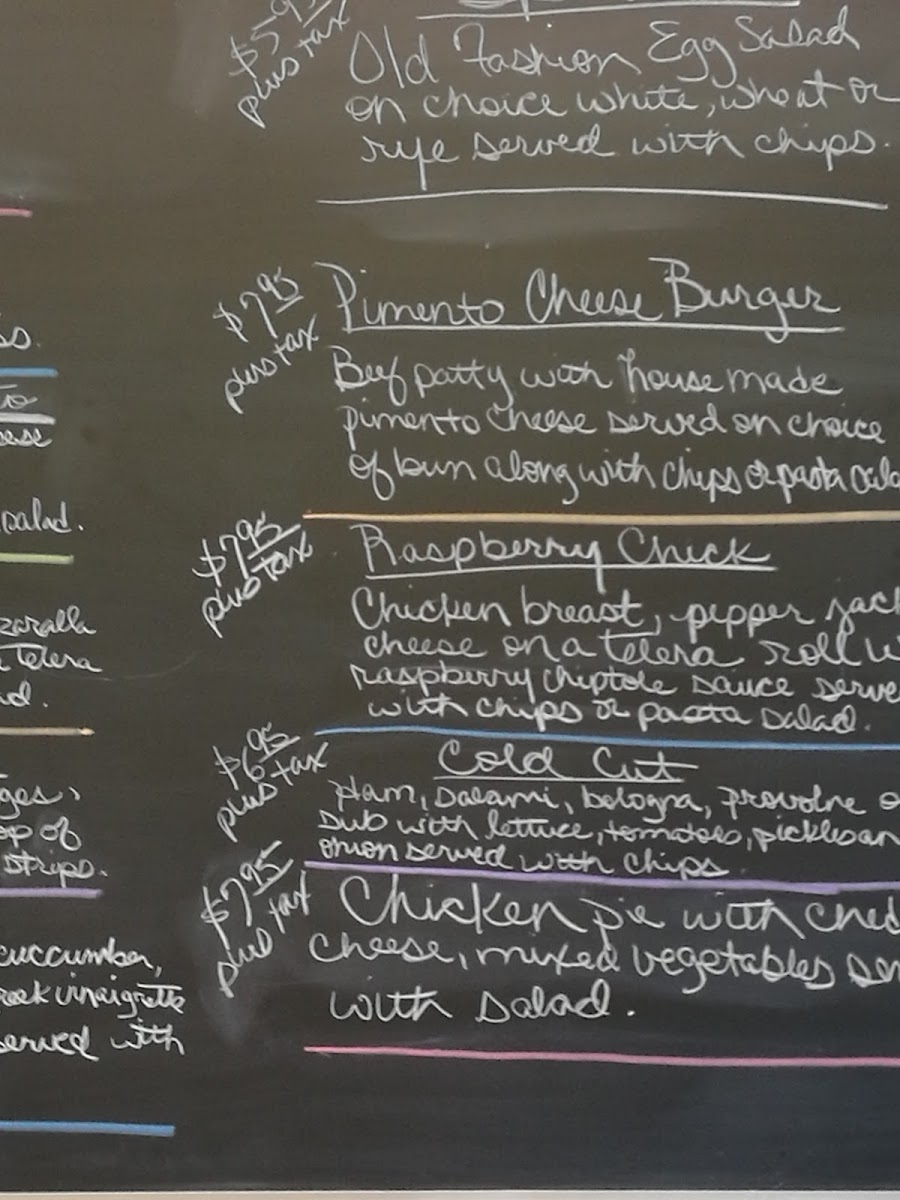 $5.95
plus tax
Old Fashion Egg Salad
on choice white, wheat or
rye served with chips.
$7.95
plus tax
Pimento Cheese Burger
Beef patty with house made
pimento cheese served on choice
of bun along with chips or pasta sala
$7.95
plus tax
Raspberry Chick
Chicken breast, pepper jack
cheese on a telera roll w
raspberry chiptole sauce serve
with chips or pasta salad.
$6.95
plus tax
Cold Cut
Ham, Salami, bologna, provolne o
sub with lettuce, tomatoes, pickles an
onion served with chips.
$7.95
plus tax
Chicken pie with ched
cheese, mixed vegetables ser
with salad.
ss.
to
ese
salad.
zaralla
a Telera
ad.
ges,
op of
strips.
cuccumber,
reek vinaigrette
served with